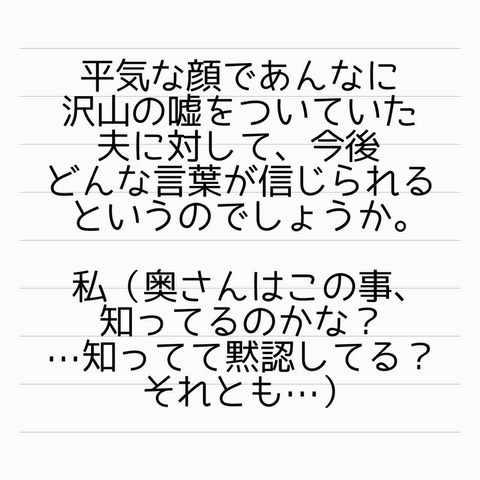 平気な顔であんなに
沢山の嘘をついていた
夫に対して、今後
どんな言葉が信じられる
というのでしょうか。
私（奥さんはこの事、
知ってるのかな？
…知ってて黙認してる？
それとも…）